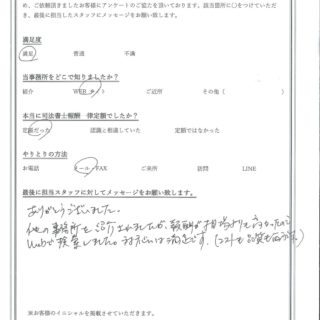 め、ご依頼頂きましたお客様にアンケートのご協力を頂いております。該当箇所に○をつけていただき、
最後に担当したスタッフにメッセージをお願い致します。
満足度
満足 普通 不満
当事務所をどこで知りましたか？
紹介 WEBサイト ご近所 その他（ ）
本当に司法書士報酬 一律定額でしたか？
定額だった 認識と相違していた 定額ではなかった
やりとりの方法
お電話 メール・FAX ご来所 訪問 LINE
最後に担当スタッフに対してメッセージをお願い致します。
ありがとうございました。
他の事務所を紹介されましたが、報酬が相場より高かったので
Webで検索しました。対応には満足です。（コストも品質も
※お客様のイニシャルを掲載させていただきます。